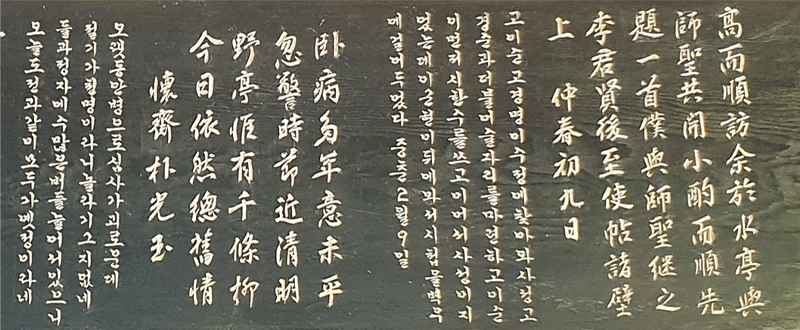 高而順訪余於水亭與
師聖共開小酌而順先
題一首僕與師聖継之
李君賢後至使帖諸壁
上 仲春初九日
고이순고경명이수정에찾아와사성고
경순과더불어술자리를마련하고이순
이먼저시한수를쓰고이어서사성이지
었는데이순현이뒤에와서시첩을벽우
에걸어두었다 중춘2월9일
卧病多年意未平
忽警時節近清明
野亭惟有千條柳
今日依然總舊情
懷齊朴光玉
오랫동안병으로심사가괴로운데
절기가청명이라니놀라기그지없네
들과정자에수많은버들늘어져있으니
오늘도전과같이모두가옛정이라네